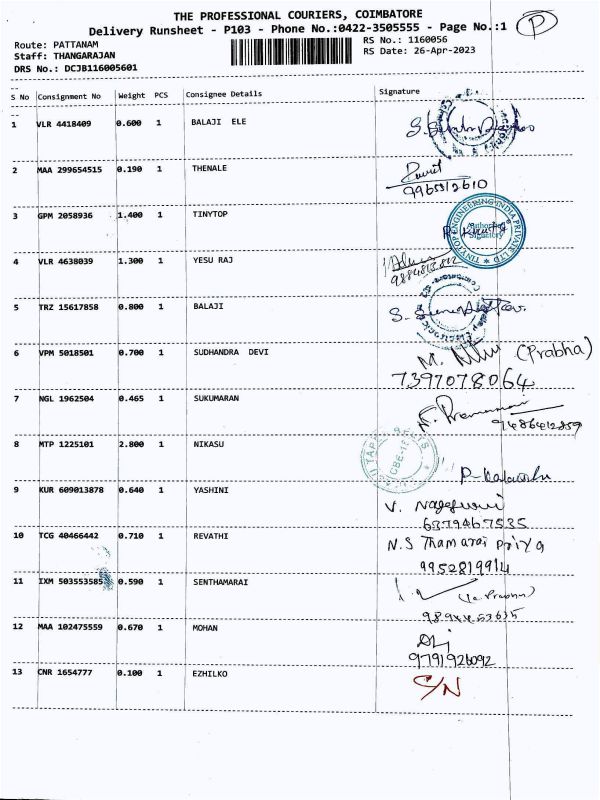 THE PROFESSIONAL COURIERS, COIMBATORE
Delivery Runsheet - P103 - Phone No.:0422-3505555 - Page No.:1 P
Route: PATTANAM RS No.: 1160056
Staff: THANGARAJAN RS Date: 26-Apr-2023
DRS No.: DCJB116005601
S No Consignment No Weight PCS Consignee Details Signature
1 VLR 4418409 0.600 1 BALAJI ELE
2 MAA 299654515 0.190 1 THENALE
9965512610
3 GPM 2058936 1.400 1 TINYTOP
TINYTOP ENGINEERING INDIA PRIVATE LTD
Authorised
Signatory
4 VLR 4638039 1.300 1 YESU RAJ
5 TRZ 15617858 0.800 1 BALAJI
6 VPM 5018501 0.700 1 SUDHANDRA DEVI (Prabha)
7397078064
7 NGL 1962504 0.465 1 SUKUMARAN
9486412859
8 MTP 1225101 2.800 1 NIKASU
9 KUR 609013878 0.640 1 YASHINI
6379467535
10 TCG 40466442 0.710 1 REVATHI N.S Thamarai Priya
9952819914
11 IXM 503553585 0.590 1 SENTHAMARAI
12 MAA 102475559 0.670 1 MOHAN
9791926092
13 CNR 1654777 0.100 1 EZHILKO S/N